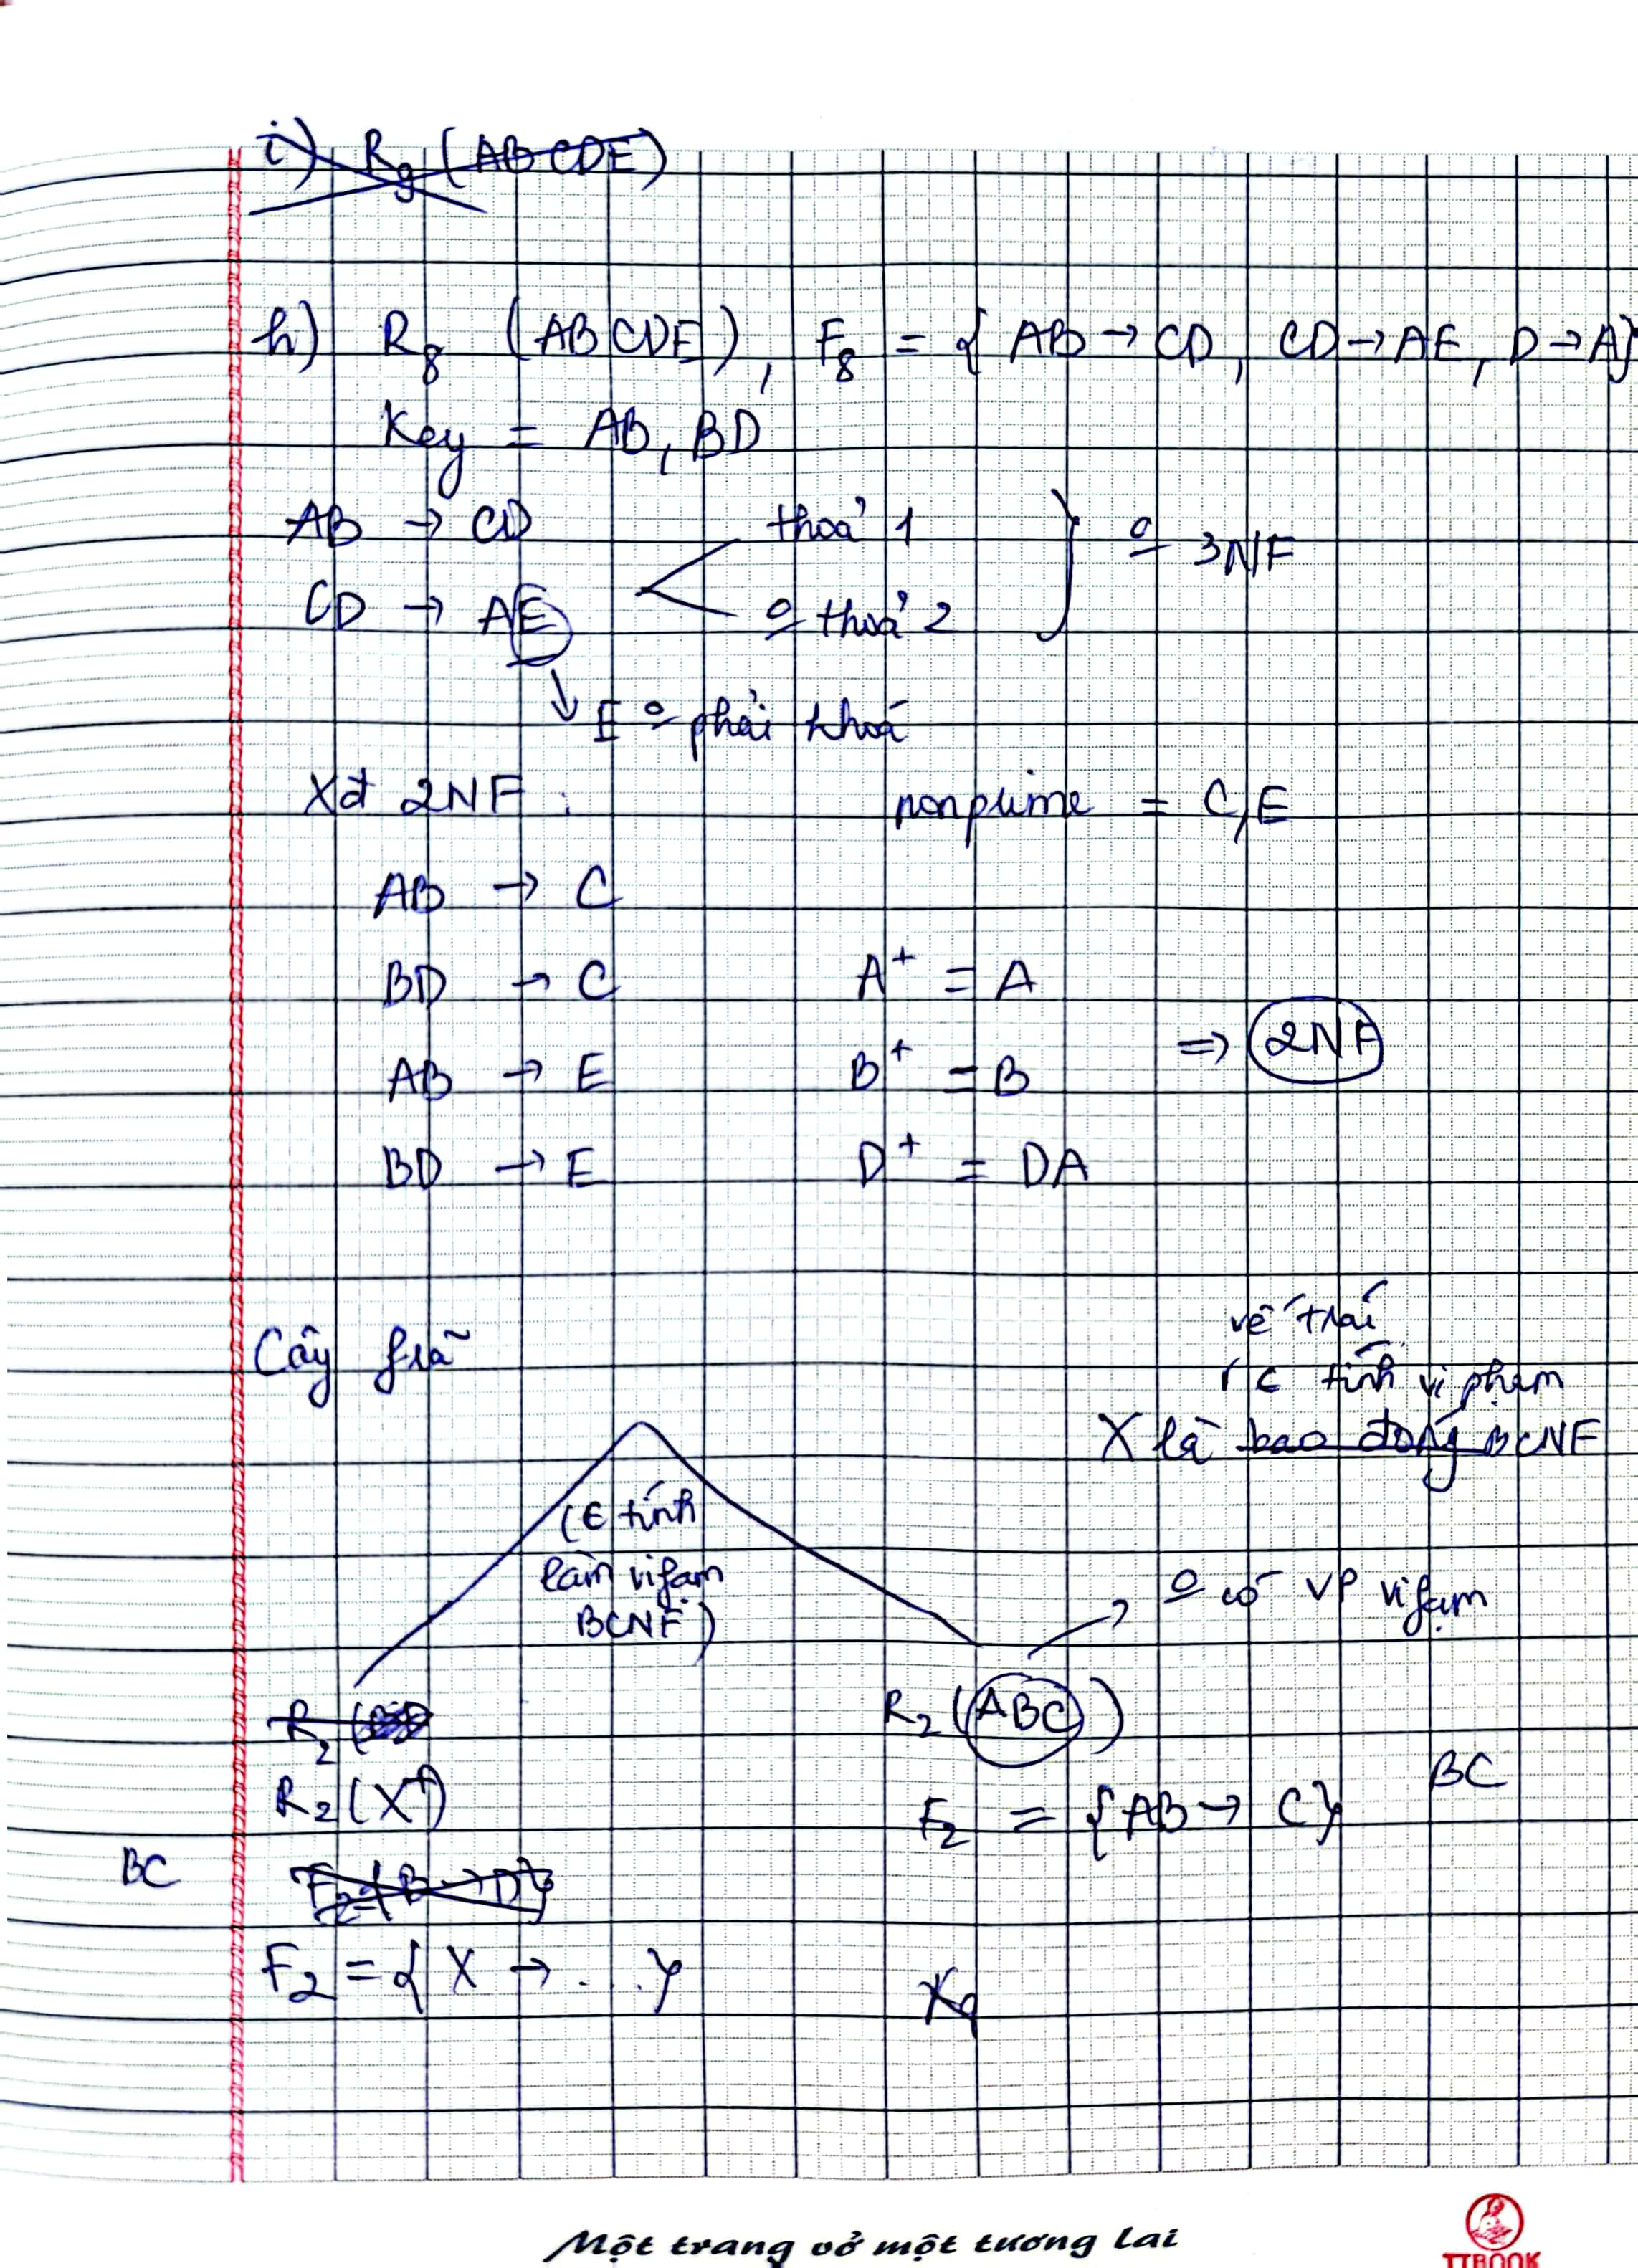 i) R9 (ABCDE)
h) R8 (ABCDE), F8 = { AB → CD, CD → AE, D → A}
Key = AB, BD
AB → CD thoả 1
o 3NF
CD → AE o thoả 2
↓ E o phải khoá
Xđ 2NF : nonprime = C,E
AB → C
BD → C A+ = A
⇒ 2NF
AB → E B+ = B
BD → E D+ = DA
vế trái
Cây
tính vi phạm
X là bao đóng BCNF
(∈ tính
làm vi fạm
BCNF)
→ o có VP vi fạm
R2
R2 (ABC)
R2 (X+) BC
F2 = {AB → C}
BC F2={B → D}
F2 = { X → ...}
Một trang vở một tương lai
TTBOOK